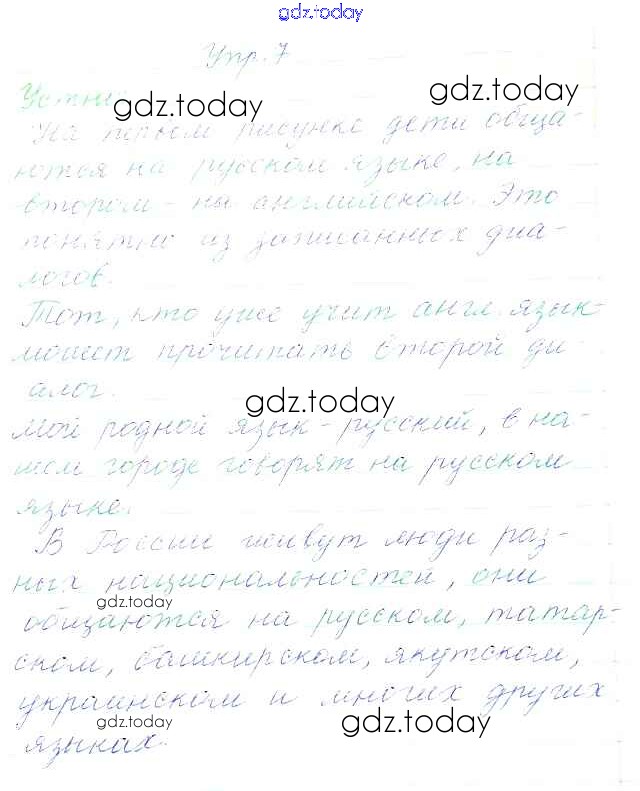 gdz.today
Упр. 7
gdz.today
Устно
gdz.today
На первом рисунке дети обща-
ются на русском языке, на
втором - на английском. Это
понятно из записанных диа-
логов.
Тот, кто уже учит англ. язык-
может прочитать второй ди-
алог.
gdz.today
Мой родной язык - русский, в на-
шем городе говорят на русском
языке.
В России живут люди раз-
ных национальностей, они
gdz.today
общаются на русском, татар-
ском, башкирском, якутском,
украинском и многих других
gdz.today
gdz.today
языках.